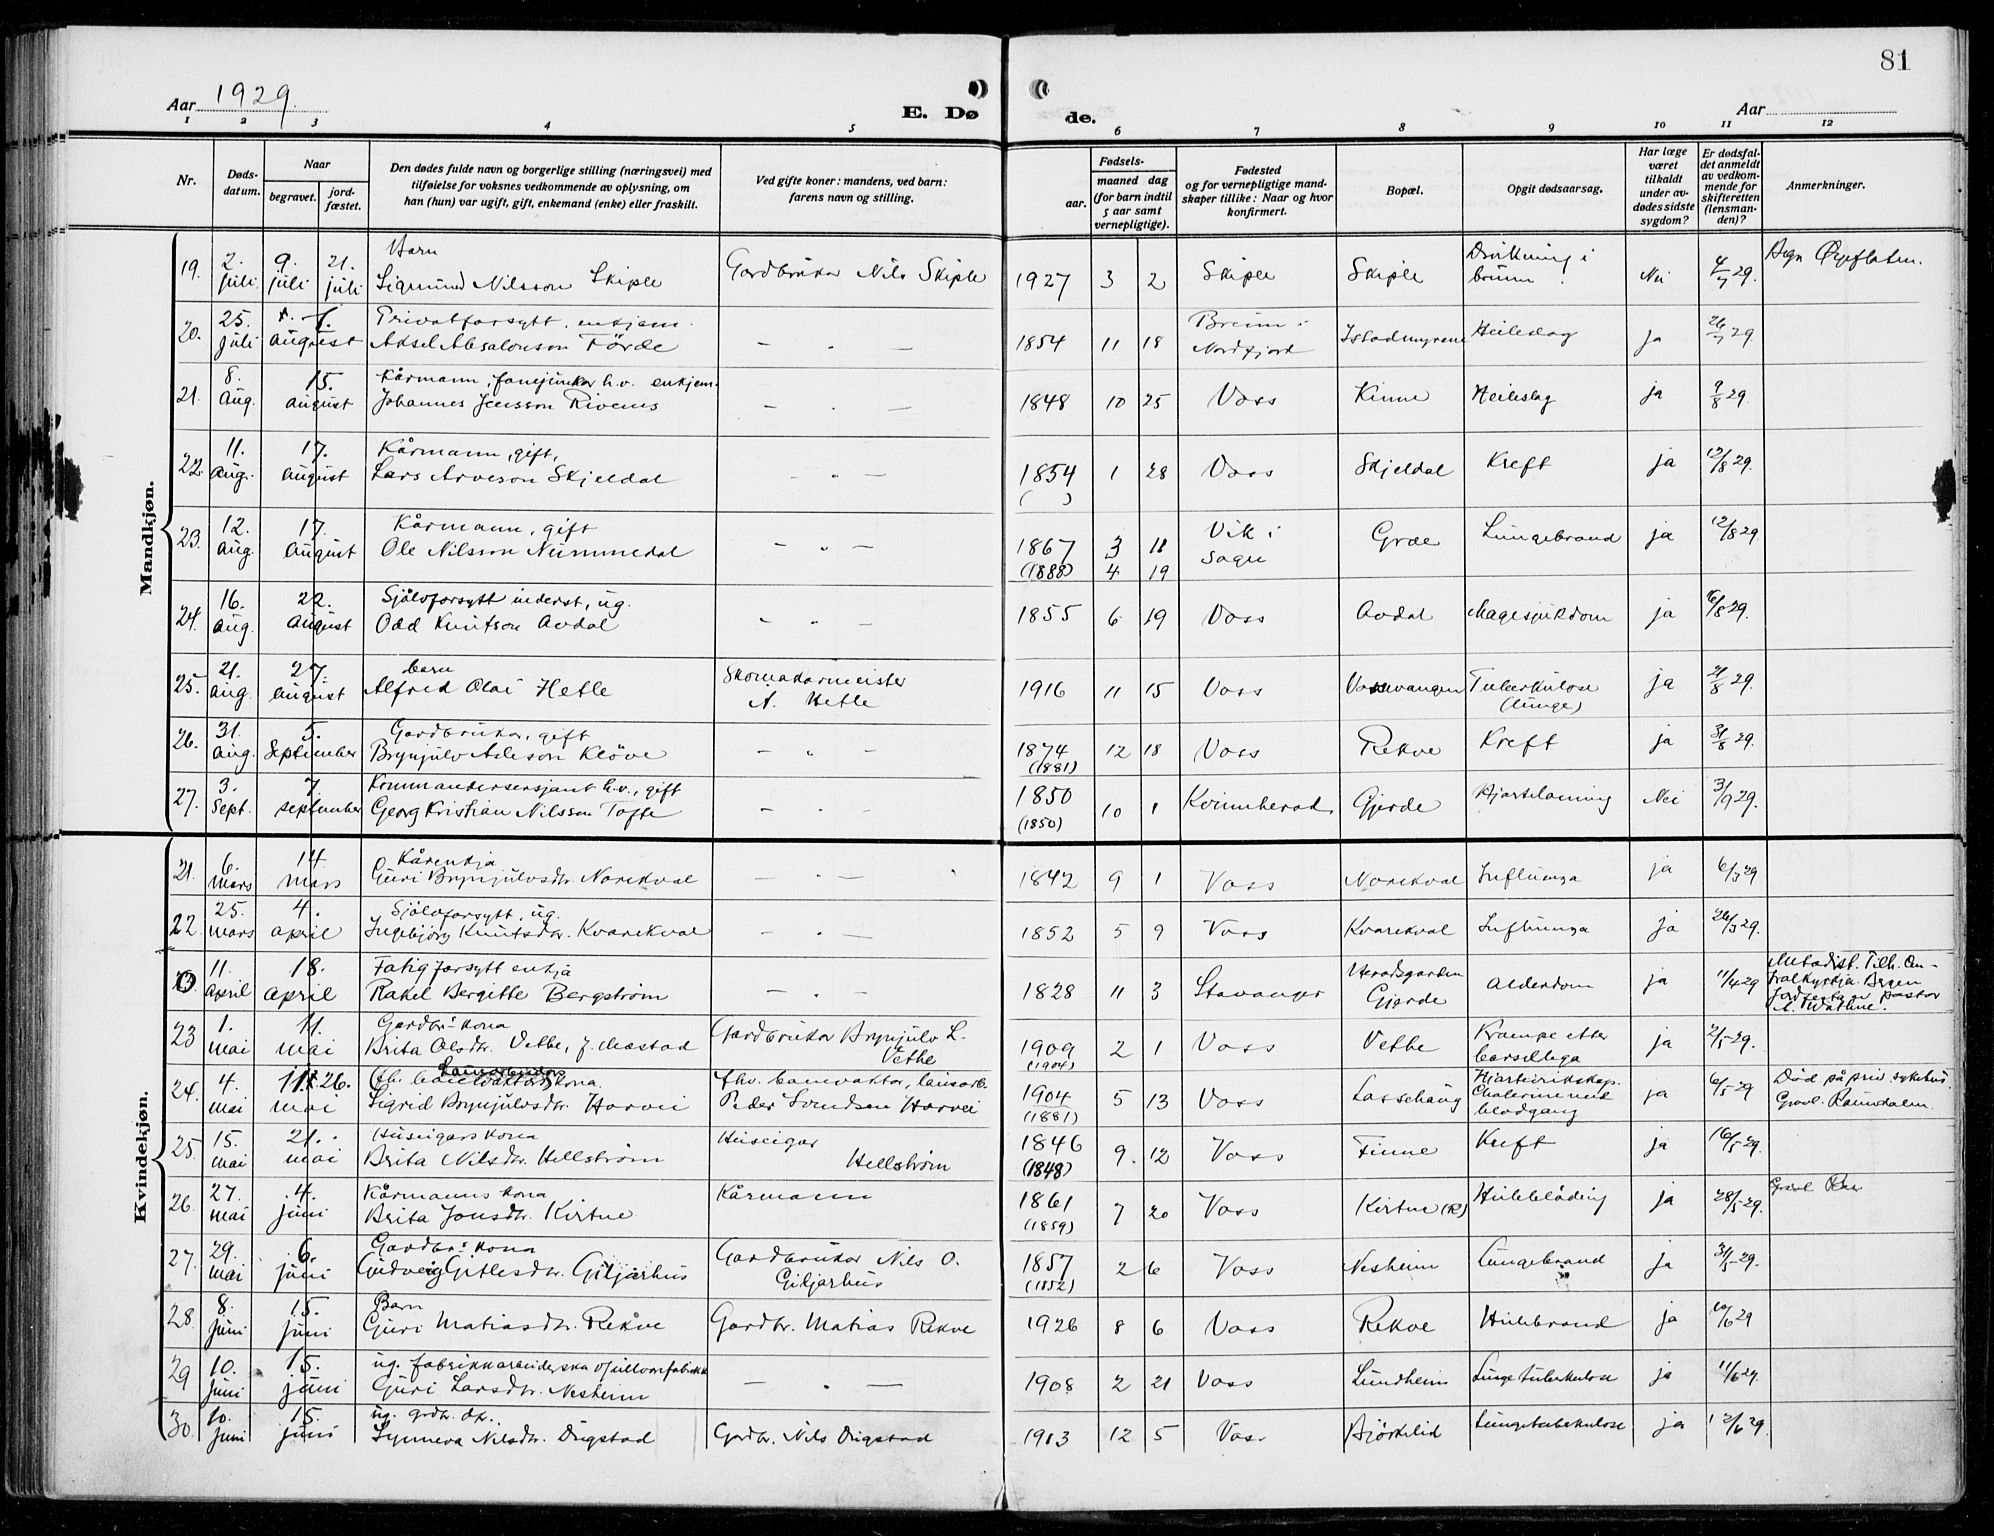 81
Aar 1929.
E. Døde.
Aar
1 2 3 4 5 6 7 8 9 10 11 12
Nr.
Døds-
datum.
Naar
begravet. jord-
fæstet.
Den dødes fulde navn og borgerlige stilling (næringsvei) med
tilføielse for voksnes vedkommende av oplysning, om
han (hun) var ugift, gift, enkemand (enke) eller fraskilt.
Ved gifte koner: mandens, ved barn:
farens navn og stilling.
Fødsels-
aar. maaned dag
(for barn indtil
5 aar samt
vernepligtige).
Fødested
og for vernepligtige mand-
skaper tillike: Naar og hvor
konfirmert.
Bopæl.
Opgit dødsaarsag.
Har læge
været
tilkaldt
under av-
dødes sidste
sygdom?
Er dødsfal-
det anmeldt
av vedkom-
mende for
skifteretten
(lensman-
den)?
Anmerkninger.
Mandkjøn.
19. 2. juli 9. juli 21. juli Barn
Sigmund Nilsson Skiple Gardbrukar Nils Skiple 1927 3 2 Skiple Skiple Drukning i
brunn. Nei 4/7 29.
20. 25. juli august Privatforsytt, enkjem.
Aksel Absalonson Förde — " — 1854 11 18 Breim i
Nordfjord Istadmyrene Heileslag ja 26/7 29.
21. 8. Aug. 15. august Kårmann, fanejunkar h.v. enkjem.
Johannes Jensson Rivenes — " — 1848 10 25 Voss Kinne Heileslag ja 9/8 29.
22. 11. aug. 17. august Kårmann, gift,
Lars Arveson Skjeldal — " — 1854 1 28 Voss Skjeldal Kreft ja 12/8 29.
( )
23. 12. aug. 17. august Kårmann, gift
Ole Nilsson Nummedal — " — 1867 3 18 Vik i
Sogn Græe Lungebrand ja 12/8 29
(1888) 4 19
24. 16. aug. 22. august Sjölvforsytt inderst, ug.
Odd Knutson Avdal — " — 1855 6 19 Voss Avdal Magesjukdom ja 16/8 29.
25. 21. aug. 27. august barn
Alfred Olai Hetle Skomakarmeister
A. Hetle 1916 11 15 Voss Vossevangen Tuberkulose
(lunge) ja 21/8 29.
26. 31. aug. 5. September Gardbrukar, gift
Brynjulv Adeson Klöve — " — 1874 12 18 Voss Rekve Kreft ja 31/8 29.
(1881)
27. 3. Sept. 7. september Kommandersersjant h.v., gift
Georg Kristian Nilsson Tofte — " — 1850 10 1 Kvinnherad Gjerde Hjartelaming Nei 3/9 29.
(1850)
Kvindekjøn.
21. 6. mars 14. mars Kårenkja
Guri Brynjulvsdtr. Norekval — " — 1842 9 1 Voss Norekval Influensa ja 6/3 29
22. 25. mars 4. april Sjölvforsytt, ug.
Ingebjörg Knutsdtr. Kvarekval — " — 1852 5 9 Voss Kvarekval Influensa ja 26/3 29.
0 11. april 18. april Fatigforsytt enkja
Rakel Bergitte Bergström — " — 1828 11 3 Stavanger Heradsgarden
Gjerde Alderdom ja 11/4 29 Metodist. Tilh. Cen-
tralkyrkja Bergen
Jordfesta av pastor
A. Wathne.
23 1. mai 11. mai Gardbr's kona
Brita Olsdtr. Vethe, f. Mæstad Gardbrukar Brynjulv L.
Vethe 1909 2 1 Voss Vethe Krampe etter
barsellega ja 2/5 29.
(1904)
24. 4. mai 11. 26. mai fh. banevaktars kona.
Sigrid Brynjulvsdtr. Horvei fhv. banevaktar, lausarb.
Peder Svendsen Horvei 1904 5 13 Voss Lassehaug
blodgang ja 6/5 29 Död på priv. sykehus.
Gravl. Raundalen.
(1881)
25. 15. mai 21. mai Huseigars kona
Brita Nilsdtr. Hellström Huseigar
Hellström 1846 9. 12 Voss Finne Kreft ja 16/5 29.
(1848)
26. 27. mai 4. juni Kårmanns kona
Brita Jonsdtr. Kirtne Kårmann 1861 7 20 Voss Kirtne (R) Heileblöding ja 28/5 29.
(1859)
27. 29. mai 6. juni Gardbr's kona
Gudveig Gitlesdtr. Giljarhus Gardbrukar Nils O.
Giljarhus 1857 2 6 Voss Nesheim Lungebrand ja 31/5 29.
(1852)
28. 8. juni 15. juni Barn
Guri Matiasdtr. Rekve Gardbr. Matias Rekve 1926 8 6 Voss Rekve Heilebrand ja 10/6 29
29 10. juni 15. juni ug. fabrikkarbeiderska
Guri Larsdtr. Nesheim — " — 1908 2 21 Voss Lundheim Lungetuberkulose ja 11/6 29.
30. 10. juni 15. juni ug. grdbr. dtr.
Synneva Nilsdtr. Dugstad Gardbr. Nils Dugstad 1913 12 5 Voss Björkelid Lungetuberkulose ja 12/6 29.